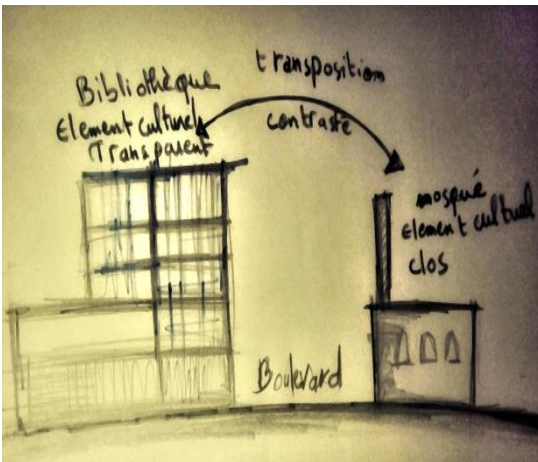 transposition
contraste
Bibliothèque
Element culturel
Transparent
mosquié
Element culturel
clos
Boulevard